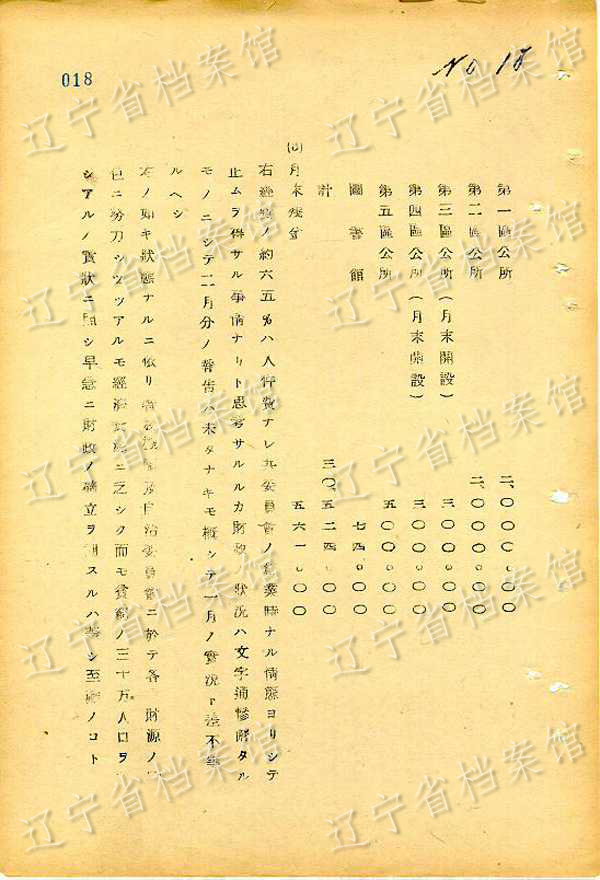 No 18
018
第一區公所 二、〇〇〇.〇〇
第二區公所 二、〇〇〇.〇〇
第三區公所（月末開設） 三〇〇.〇〇
第四區公所（月末開設） 三〇〇.〇〇
第五區公所 五〇〇.〇〇
圖書館 七四.〇〇
計 三〇、五二四.〇〇
月末殘金 五六一.〇〇
右經費ノ約六五%ハ人件費ナレ共委員會ノ ナル情態ヨリシテ
止ムヲ得サル事情ナリト思考サルルカ財政 狀況ハ文字通慘憺タル
モノニシテ二月分ノ報告ハ未タナキモ概シテ一月ノ實況ト
ルヘシ
右ノ如キ狀態ナルニ依リ 自治委員會ニ於テ各 財源ノ
ニ努力シツツアルモ經濟 ニ乏シク而モ貧窮ノ三十万人口ヲ
シアルノ實狀ニ シ早急ニ財政ノ確立ヲ スルハ シ至難ノコト
辽宁省档案馆